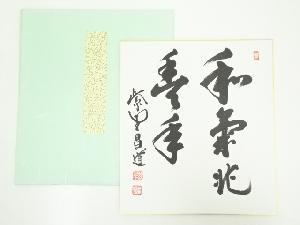 和氣兆
豊年
紫野昌道